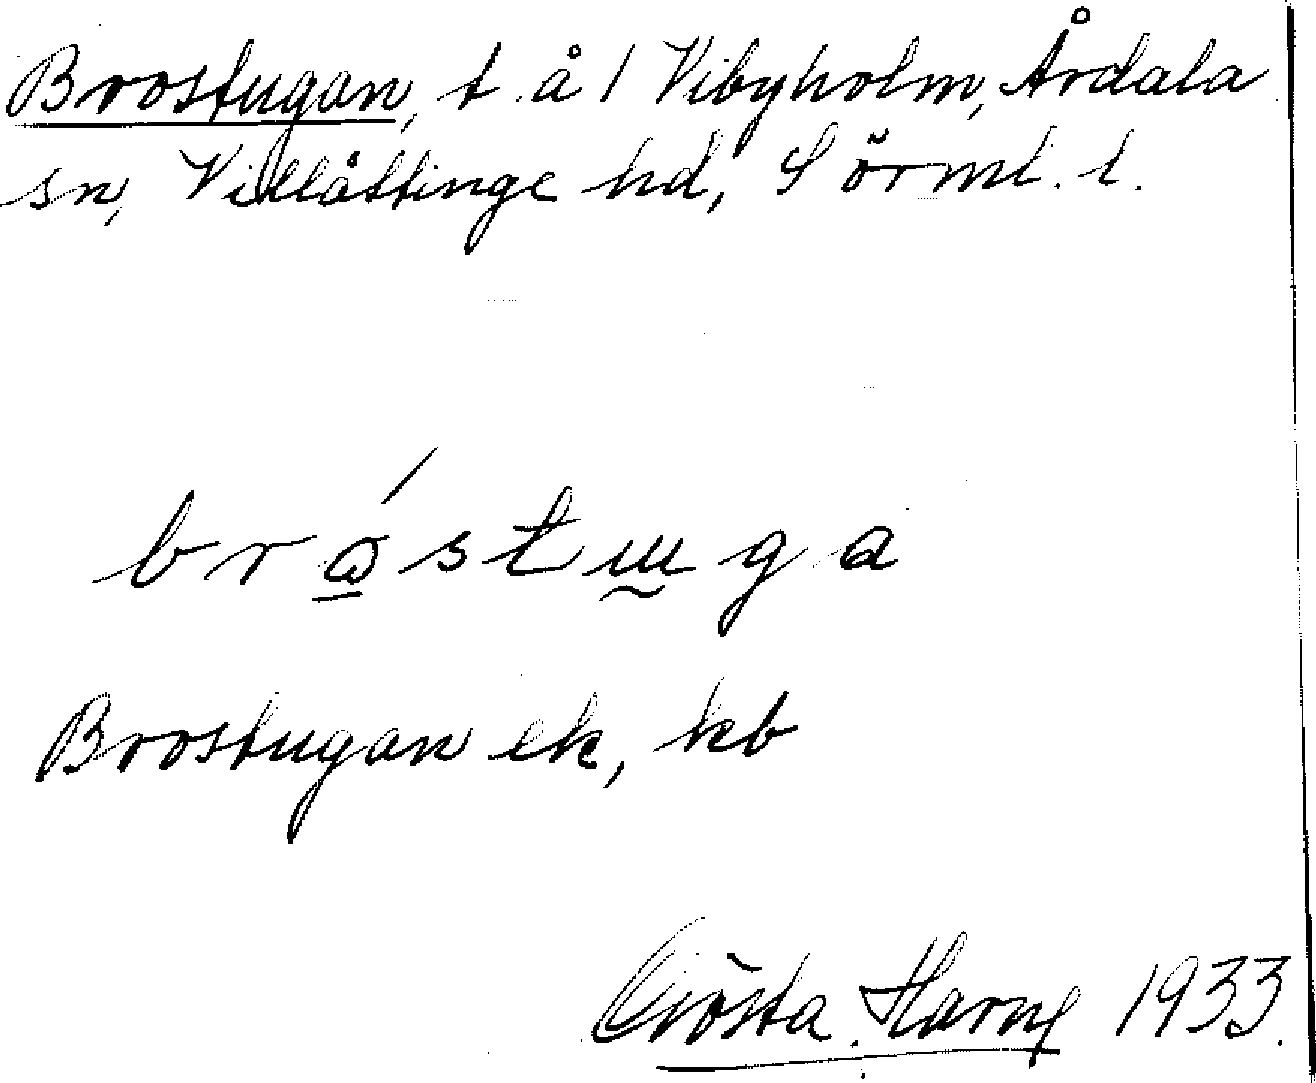 Brostugan, t. å 1 Vibyholm, Årdala
sn, Villåttinge hd, Sörml. l.
bró̱stɯ̰ga
Brostugan ek, kb
Gösta Harng 1933.